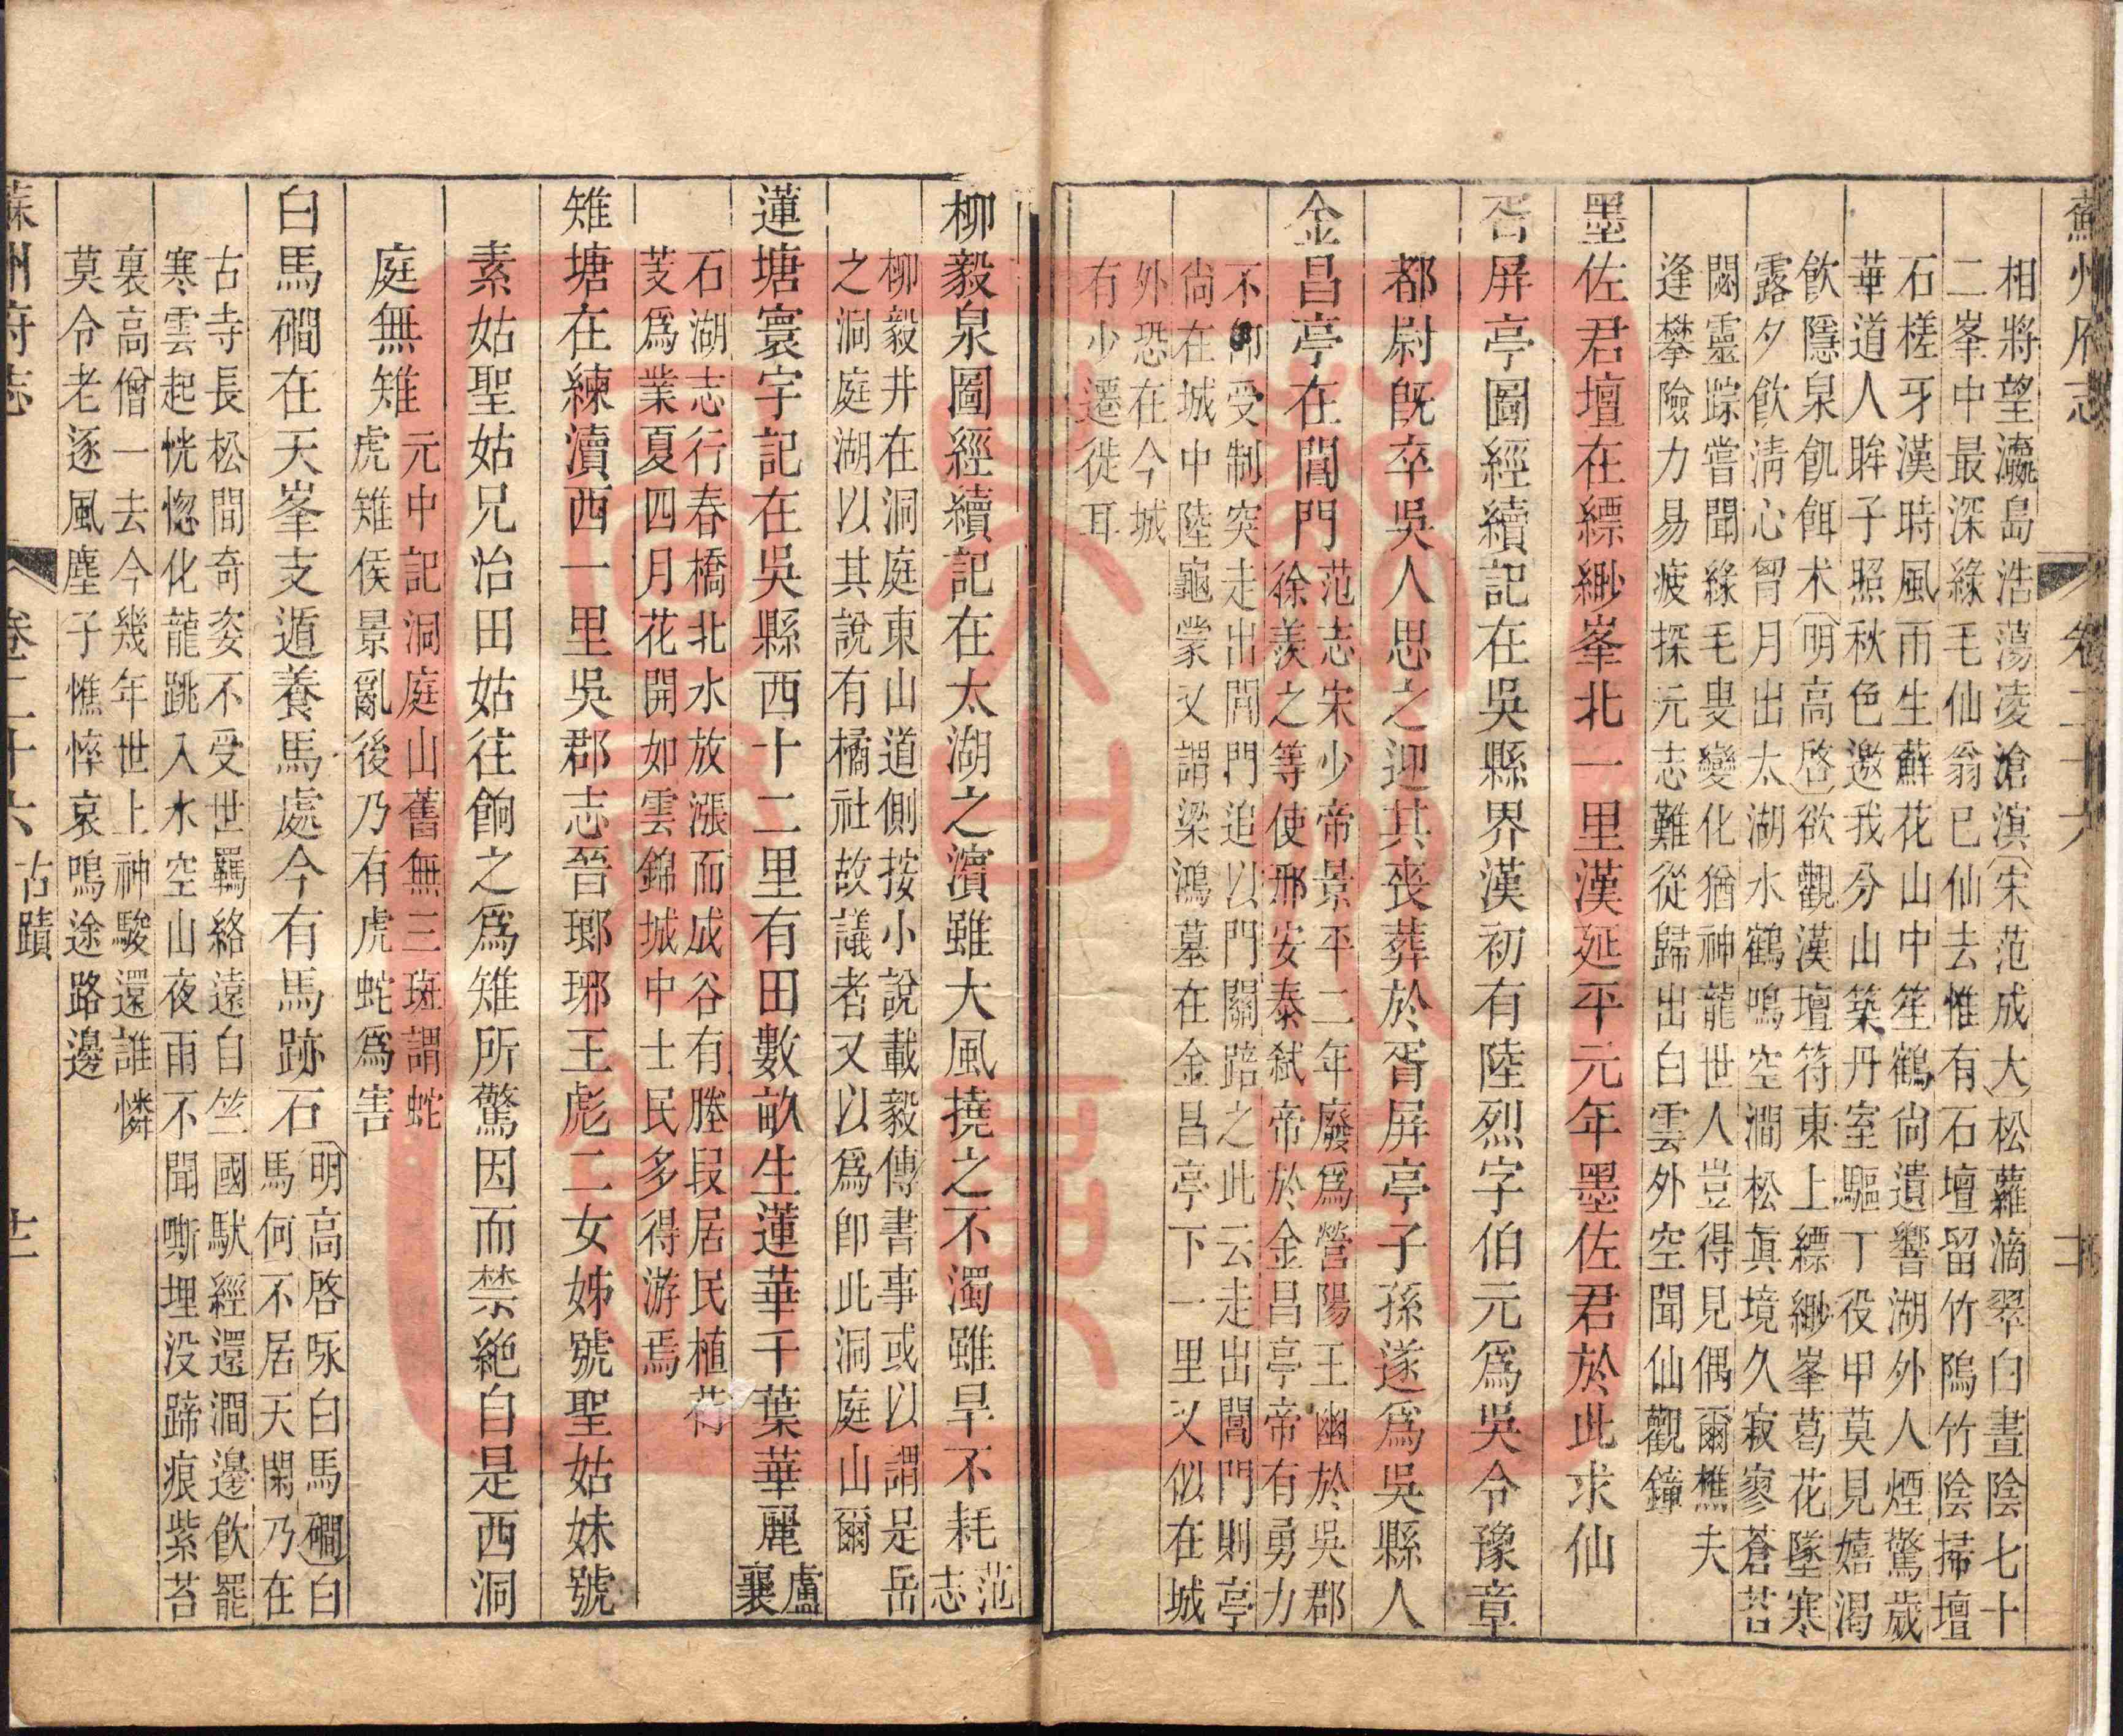 蘇州府志
卷二十六
相將望瀛島浩蕩凌滄溟宋范成大松蘿滴翠白晝陰七十
二峯中最深綠毛仙翁已仙去惟有石壇留竹塢竹陰掃壇
石槎牙漢時風雨生蘚花山中笙鶴尚遺響湖外人煙驚歲
華道人眸子照秋色邀我分山築丹室驅丁役甲莫見嬉渴
飲隱泉飢餌术明高啓欲觀漢壇符東上縹緲峯葛花墜寒
露夕飲淸心胷月出太湖水鶴鳴空澗松眞境久寂寥蒼苔
閟靈踪嘗聞綠毛叟變化猶神龍世人豈得見偶爾樵夫
逢攀險力易疲探元志難從歸出白雲外空聞仙觀鐘
墨佐君壇在縹緲峯北一里漢延平元年墨佐君於此求仙
胥屏亭圖經續記在吳縣界漢初有陸烈字伯元爲吳令豫章
都尉旣卒吳人思之迎其喪葬於胥屏亭子孫遂爲吳縣人
金昌亭在閶門
范志宋少帝景平二年廢爲營陽王幽於吳郡
徐羨之等使邢安泰弒帝於金昌亭帝有勇力
不卽受制突走出閶門追以門關踣之此云走出閶門則亭
尙在城中陸龜蒙又謂梁鴻墓在金昌亭下一里又似在城
外恐在今城
有少遷徙耳
柳毅泉圖經續記在太湖之濱雖大風撓之不濁雖旱不耗
范
志
柳毅井在洞庭東山道側按小說載毅傳書事或以謂是岳
之洞庭湖以其說有橘社故議者又以爲卽此洞庭山爾
蓮塘寰宇記在吳縣西十二里有田數畝生蓮華千葉華麗
盧
襄
石湖志行春橋北水放漲而成谷有塍段居民植荷
芰爲業夏四月花開如雲錦城中士民多得游焉
雉塘在練瀆西一里吳郡志晉瑯琊王彪二女姊號聖姑妹號
素姑聖姑兄治田姑往餉之爲雉所驚因而禁絶自是西洞
庭無雉
元中記洞庭山舊無三斑謂蛇
虎雉侯景亂後乃有虎蛇爲害
白馬磵在天峯支遁養馬處今有馬跡石
明高啓咏白馬磵白
馬何不居天閑乃在
古寺長松間奇姿不受世羈絡遠自竺國馱經還澗邊飲罷
寒雲起恍惚化龍跳入水空山夜雨不聞嘶埋没蹄痕紫苔
裏高僧一去今幾年世上神駿還誰憐
莫令老逐風塵子憔悴哀鳴途路邊
蘇州府志
卷二十六
古蹟